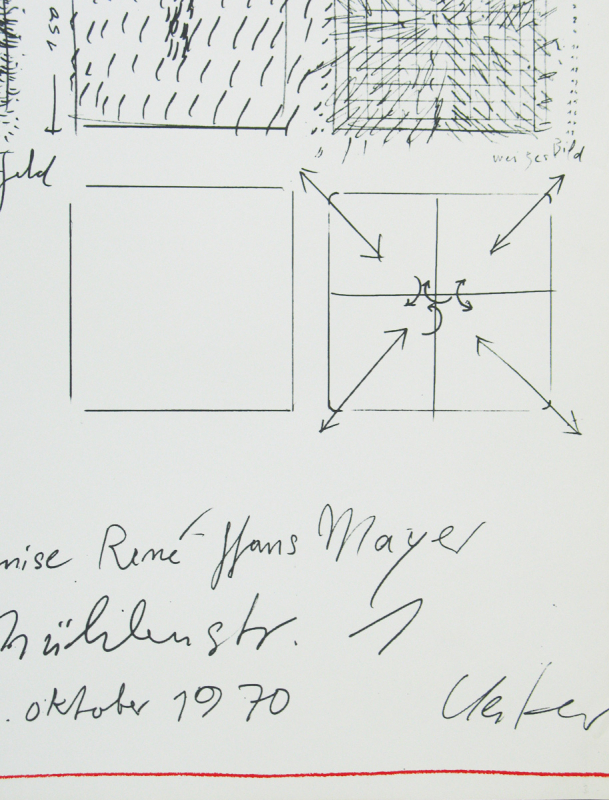 feld
weißes Bild
nise René-Hans Mayer
Mühlenstr. 1
. oktober 1970
Uecker